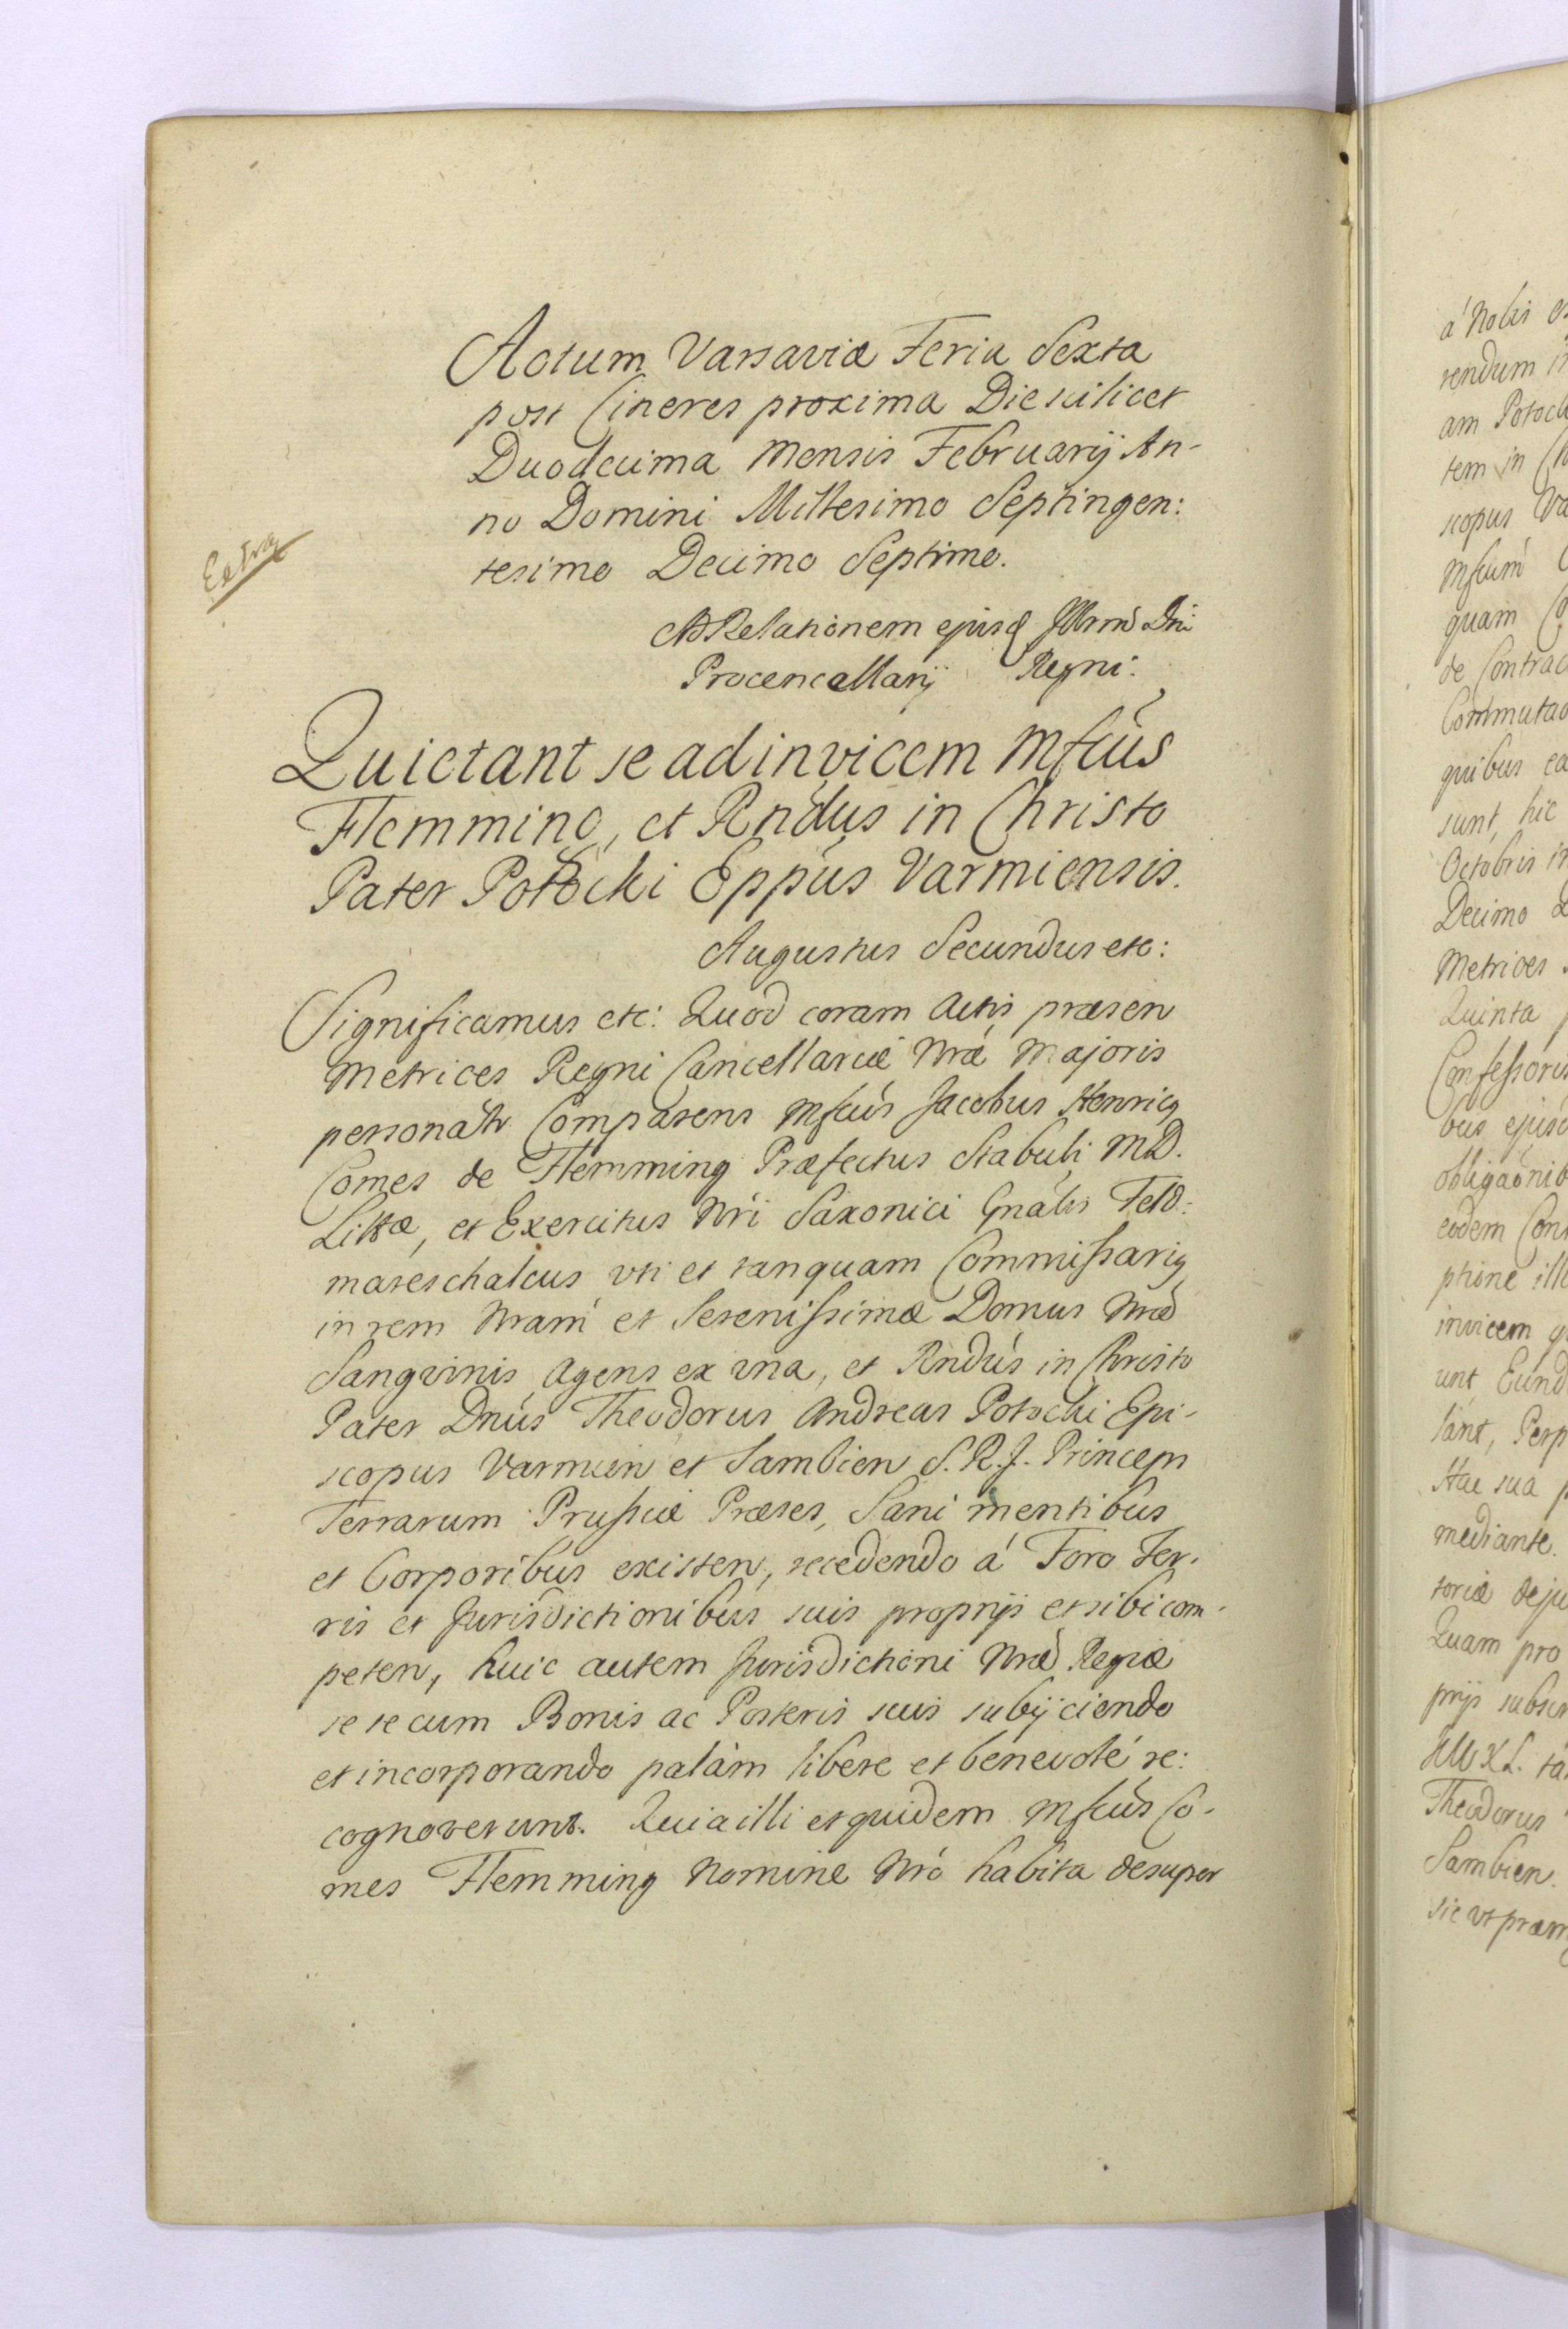 Actum Varsaviæ Feria Sexta
post Cineres proxima Die scilicet
Duodecima Mensis Februarij An-
no Domini Millesimo Septingen:
tesimo Decimo Septimo.
Extra
AD Relationem ejusd Illrmi Dni
Procencellarij Regni.
Quietant se adinvicem Mfcus
Flemming, et Rndus in Christo
Pater Potocki Eppus Varmiensis.
Augustus Secundus etc:
Significamus etc: Quod coram Actis præsen
Metrices Regni Cancellariæ Nræ Majoris
personatr Comparens Mfcus Jacobus Henricq
Comes de Flemming Præfectus Stabuli M.D.
Littæ, et Exercitus Nri Saxonici Gnalis Feld:
mareschalcus, uti et tanquam Commissariq
in rem Nram et Serenissimæ Domus Nræ
Sangvinis Agens ex una, et Rndus in Christo
Pater Dnus Theodorus Andreas Potocki Epi-
scopus Varmien et Sambien S.R.J. Princeps
Terrarum Prussiæ Præses, Sani mentibus
et Corporibus existen, recedendo á Foro Ter-
ris et Jurisdictionibus suis proprijs et sibi com-
peten, huic autem Jurisdictioni Nræ Regiæ
se se cum Bonis ac Posteris suis subijciendo
et incorporando palàm libere et benevolé re:
cognoverunt. Quia illi et quidem Mfcus Co-
mes Flemming Nomine Nro habita desuper
á Nobis
rendum
am
tem in
scopus
Mfcum
quam
de
quibus
sunt, hic
Octobris
Decimo
Metrices
Quinta
bus
eodem
ptione
invicem
unt
Hac sua
mediante
toriæ
Quam pro
prijs
Theodorus
Sambien.
sic ut